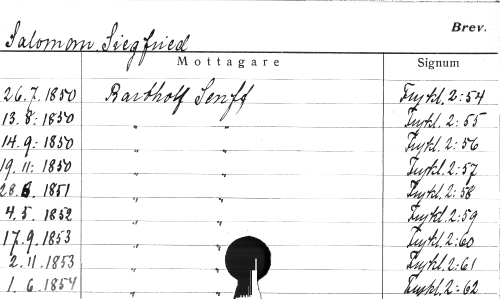 Brev.
Salomon, Siegfried
Mottagare Signum
26.7.1850 Bartholf Senff Frykl. 2:54
13.8.1850 " " Frykl. 2:55
14.9.1850 " " Frykl. 2:56
19.11.1850 " " Frykl. 2:57
28.8.1851 " " Frykl. 2:58
4.5.1852 " " Frykl. 2:59
17.9.1853 " " Frykl. 2:60
2.11.1853 " Frykl. 2:61
1.6.1854 " Frykl. 2:62